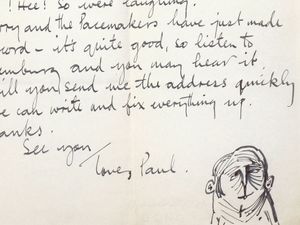 ! Hee! So we're laughing.
rry and the Pacemakers have just made
word - it's quite good, so listen to
emburg and you may hear it.
ill you send me the address quickly
e can write and fix everything up.
anks.
See you
Love, Paul.